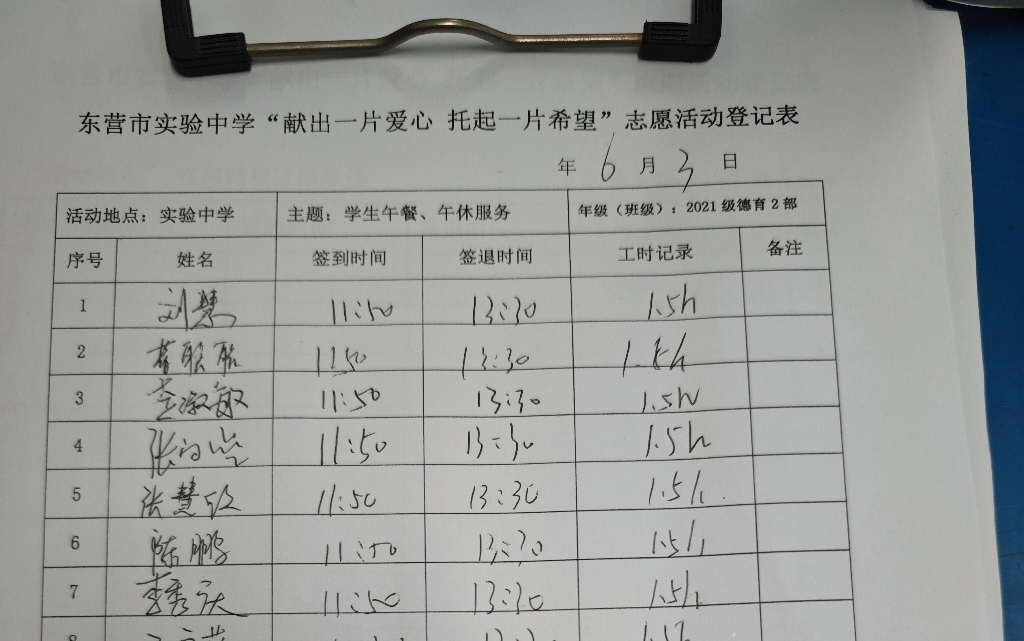 东营市实验中学“献出一片爱心 托起一片希望”志愿活动登记表
年 6 月 3 日
活动地点：实验中学 主题：学生午餐、午休服务 年级（班级）：2021级德育2部
序号 姓名 签到时间 签退时间 工时记录 备注
1 刘慧 11:50 13:30 1.5h
2 11:50 13:30 1.5h
3 李淑敏 11:50 13:30 1.5h
4 张 11:50 13:30 1.5h
5 张慧欣 11:50 13:30 1.5h
6 陈鹏 11:50 13:30 1.5h
7 李秀庆 11:50 13:30 1.5h
8